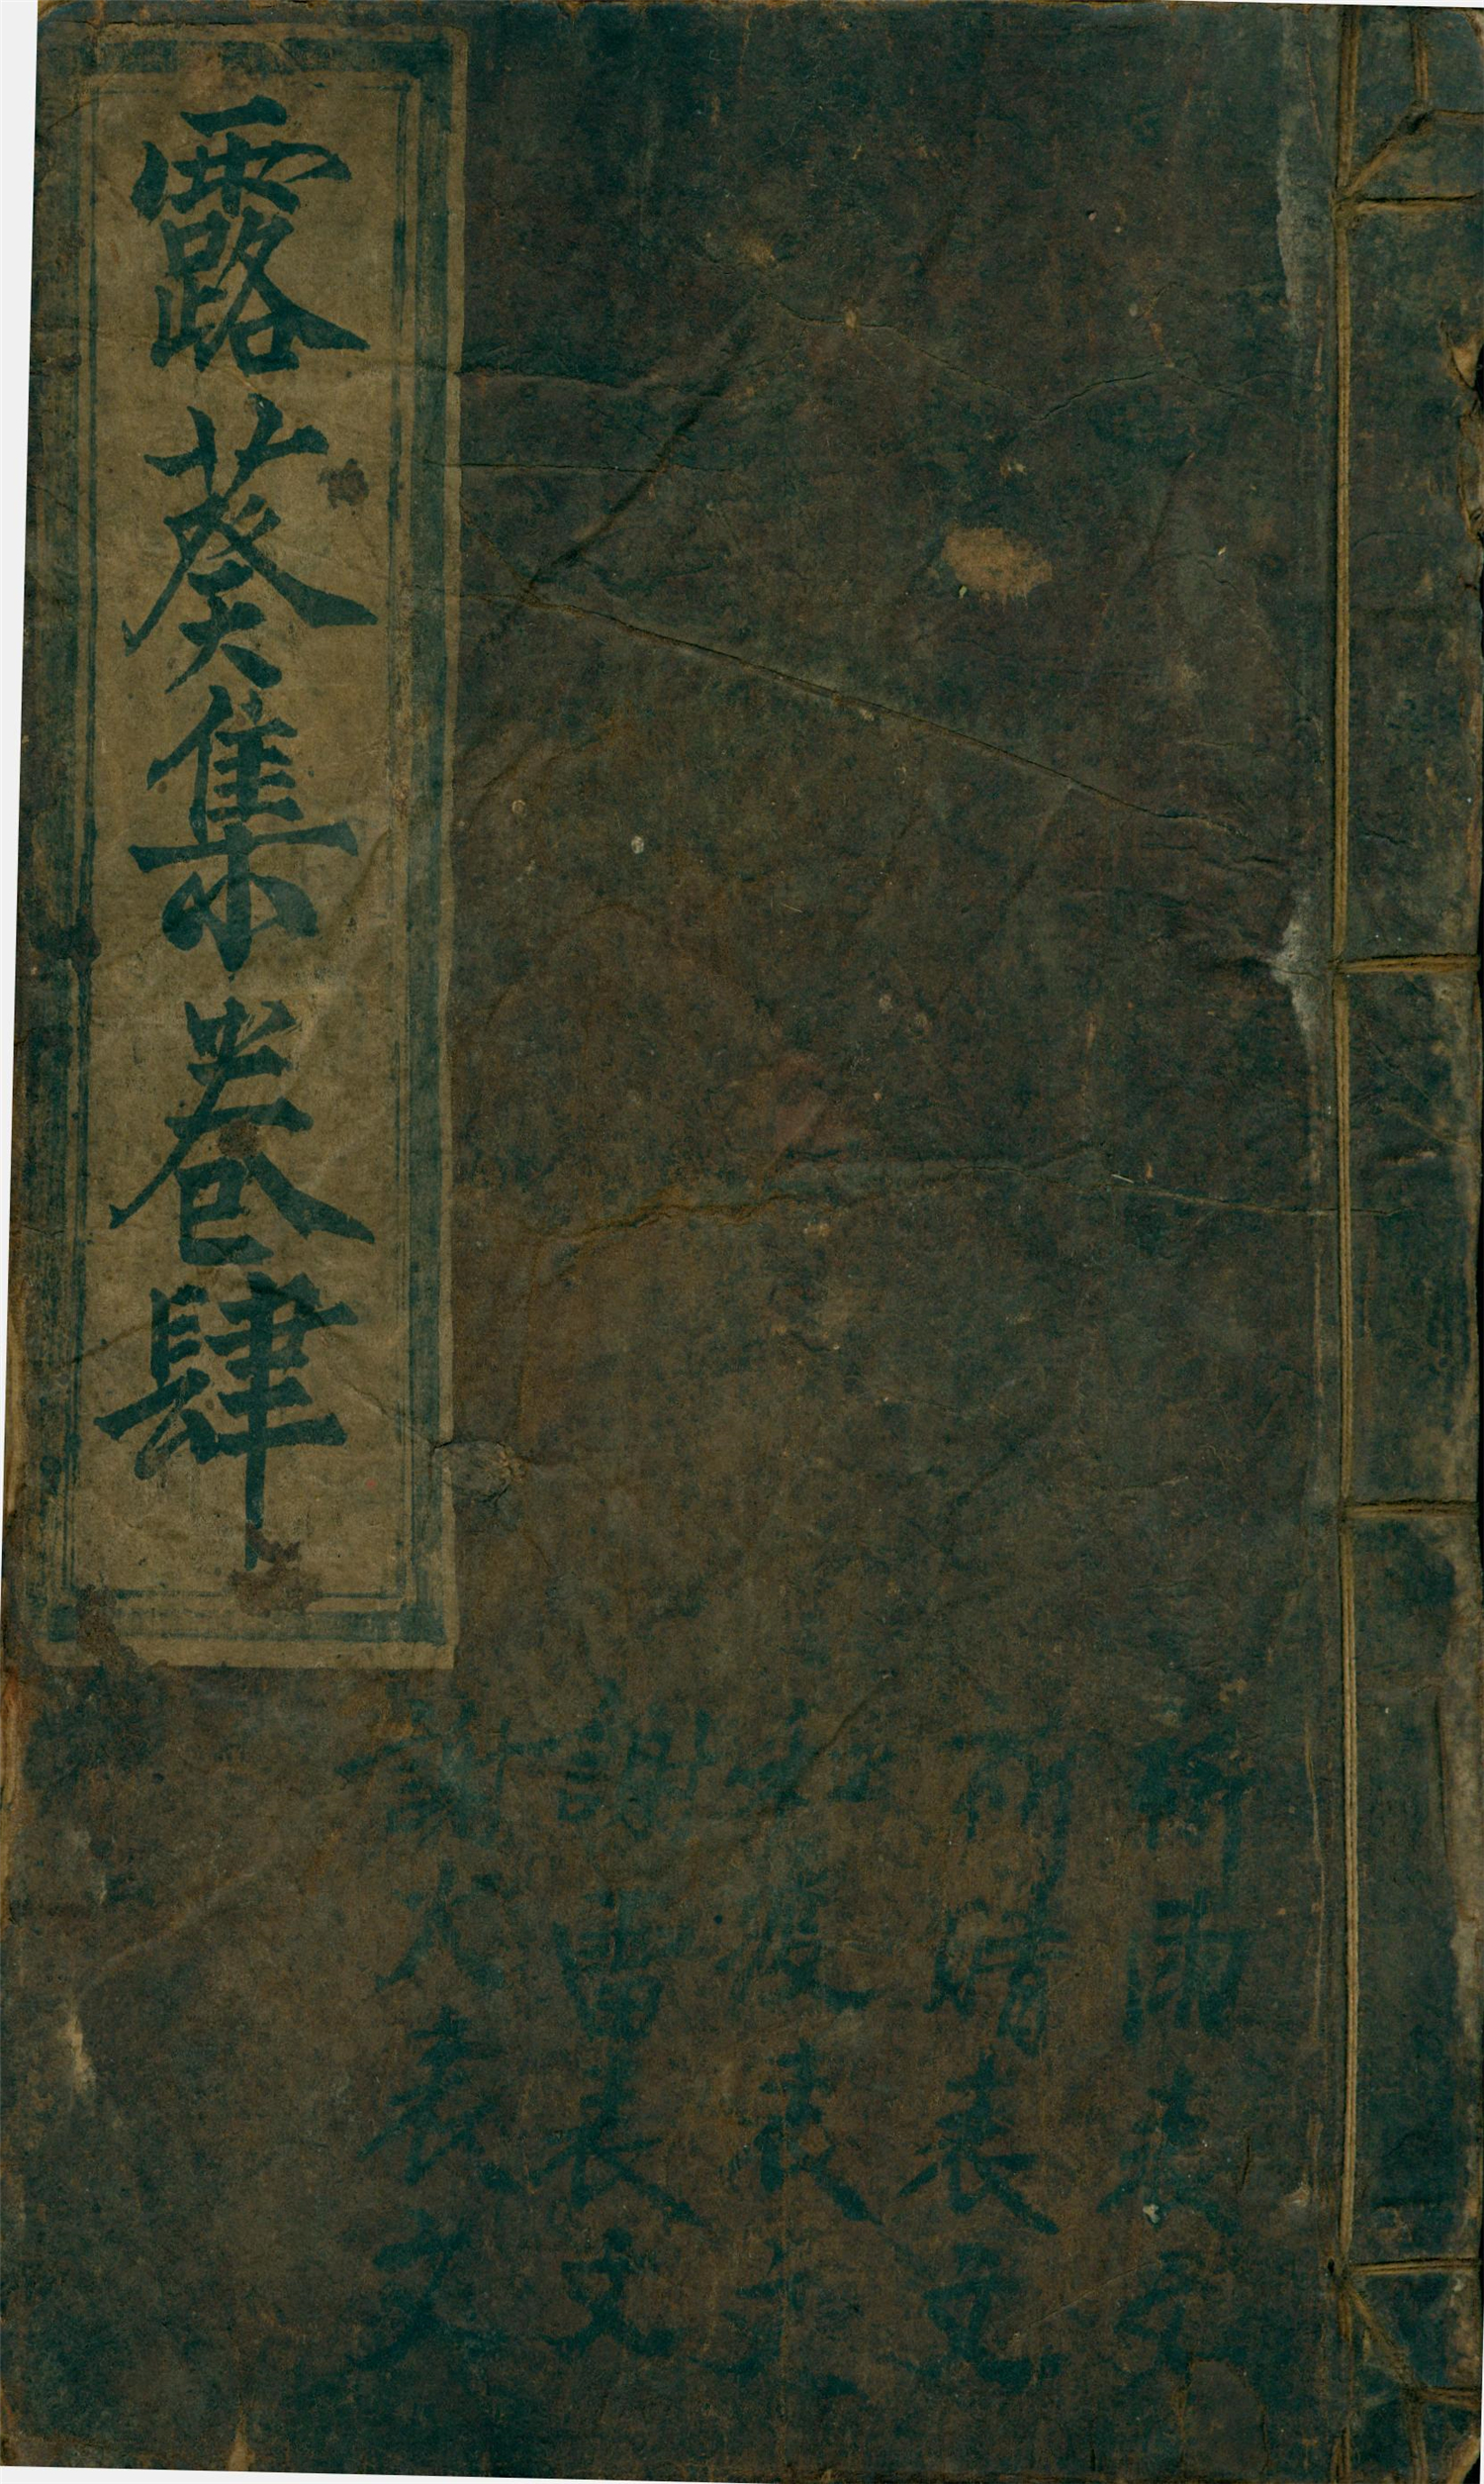 祈雨表文
祈晴表文
表文
謝雷表文
謝火表文
露葵集卷肆